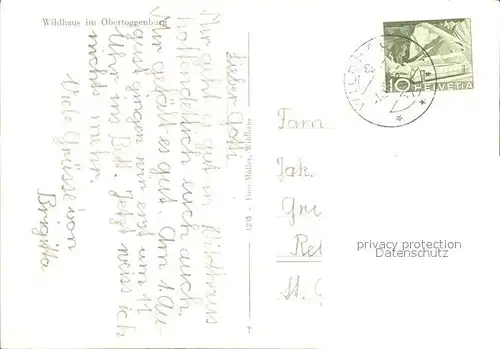 Wildhaus im Obertoggenburg
Lieber Götti
Mir geht es gut in Wildhaus
Hoffendlich euch auch.
Mir gefällt es gut. Am 1. Au-
gust gingen wir erst um 11
Uhr ins Bett. Jetzt weiss ich
nichts mehr.
Viele Grüsse von
Brigitta
Foto Müller, Wildhaus
10
HELVETIA
Fam
Jak.
St. G
privacy protection
Datenschutz